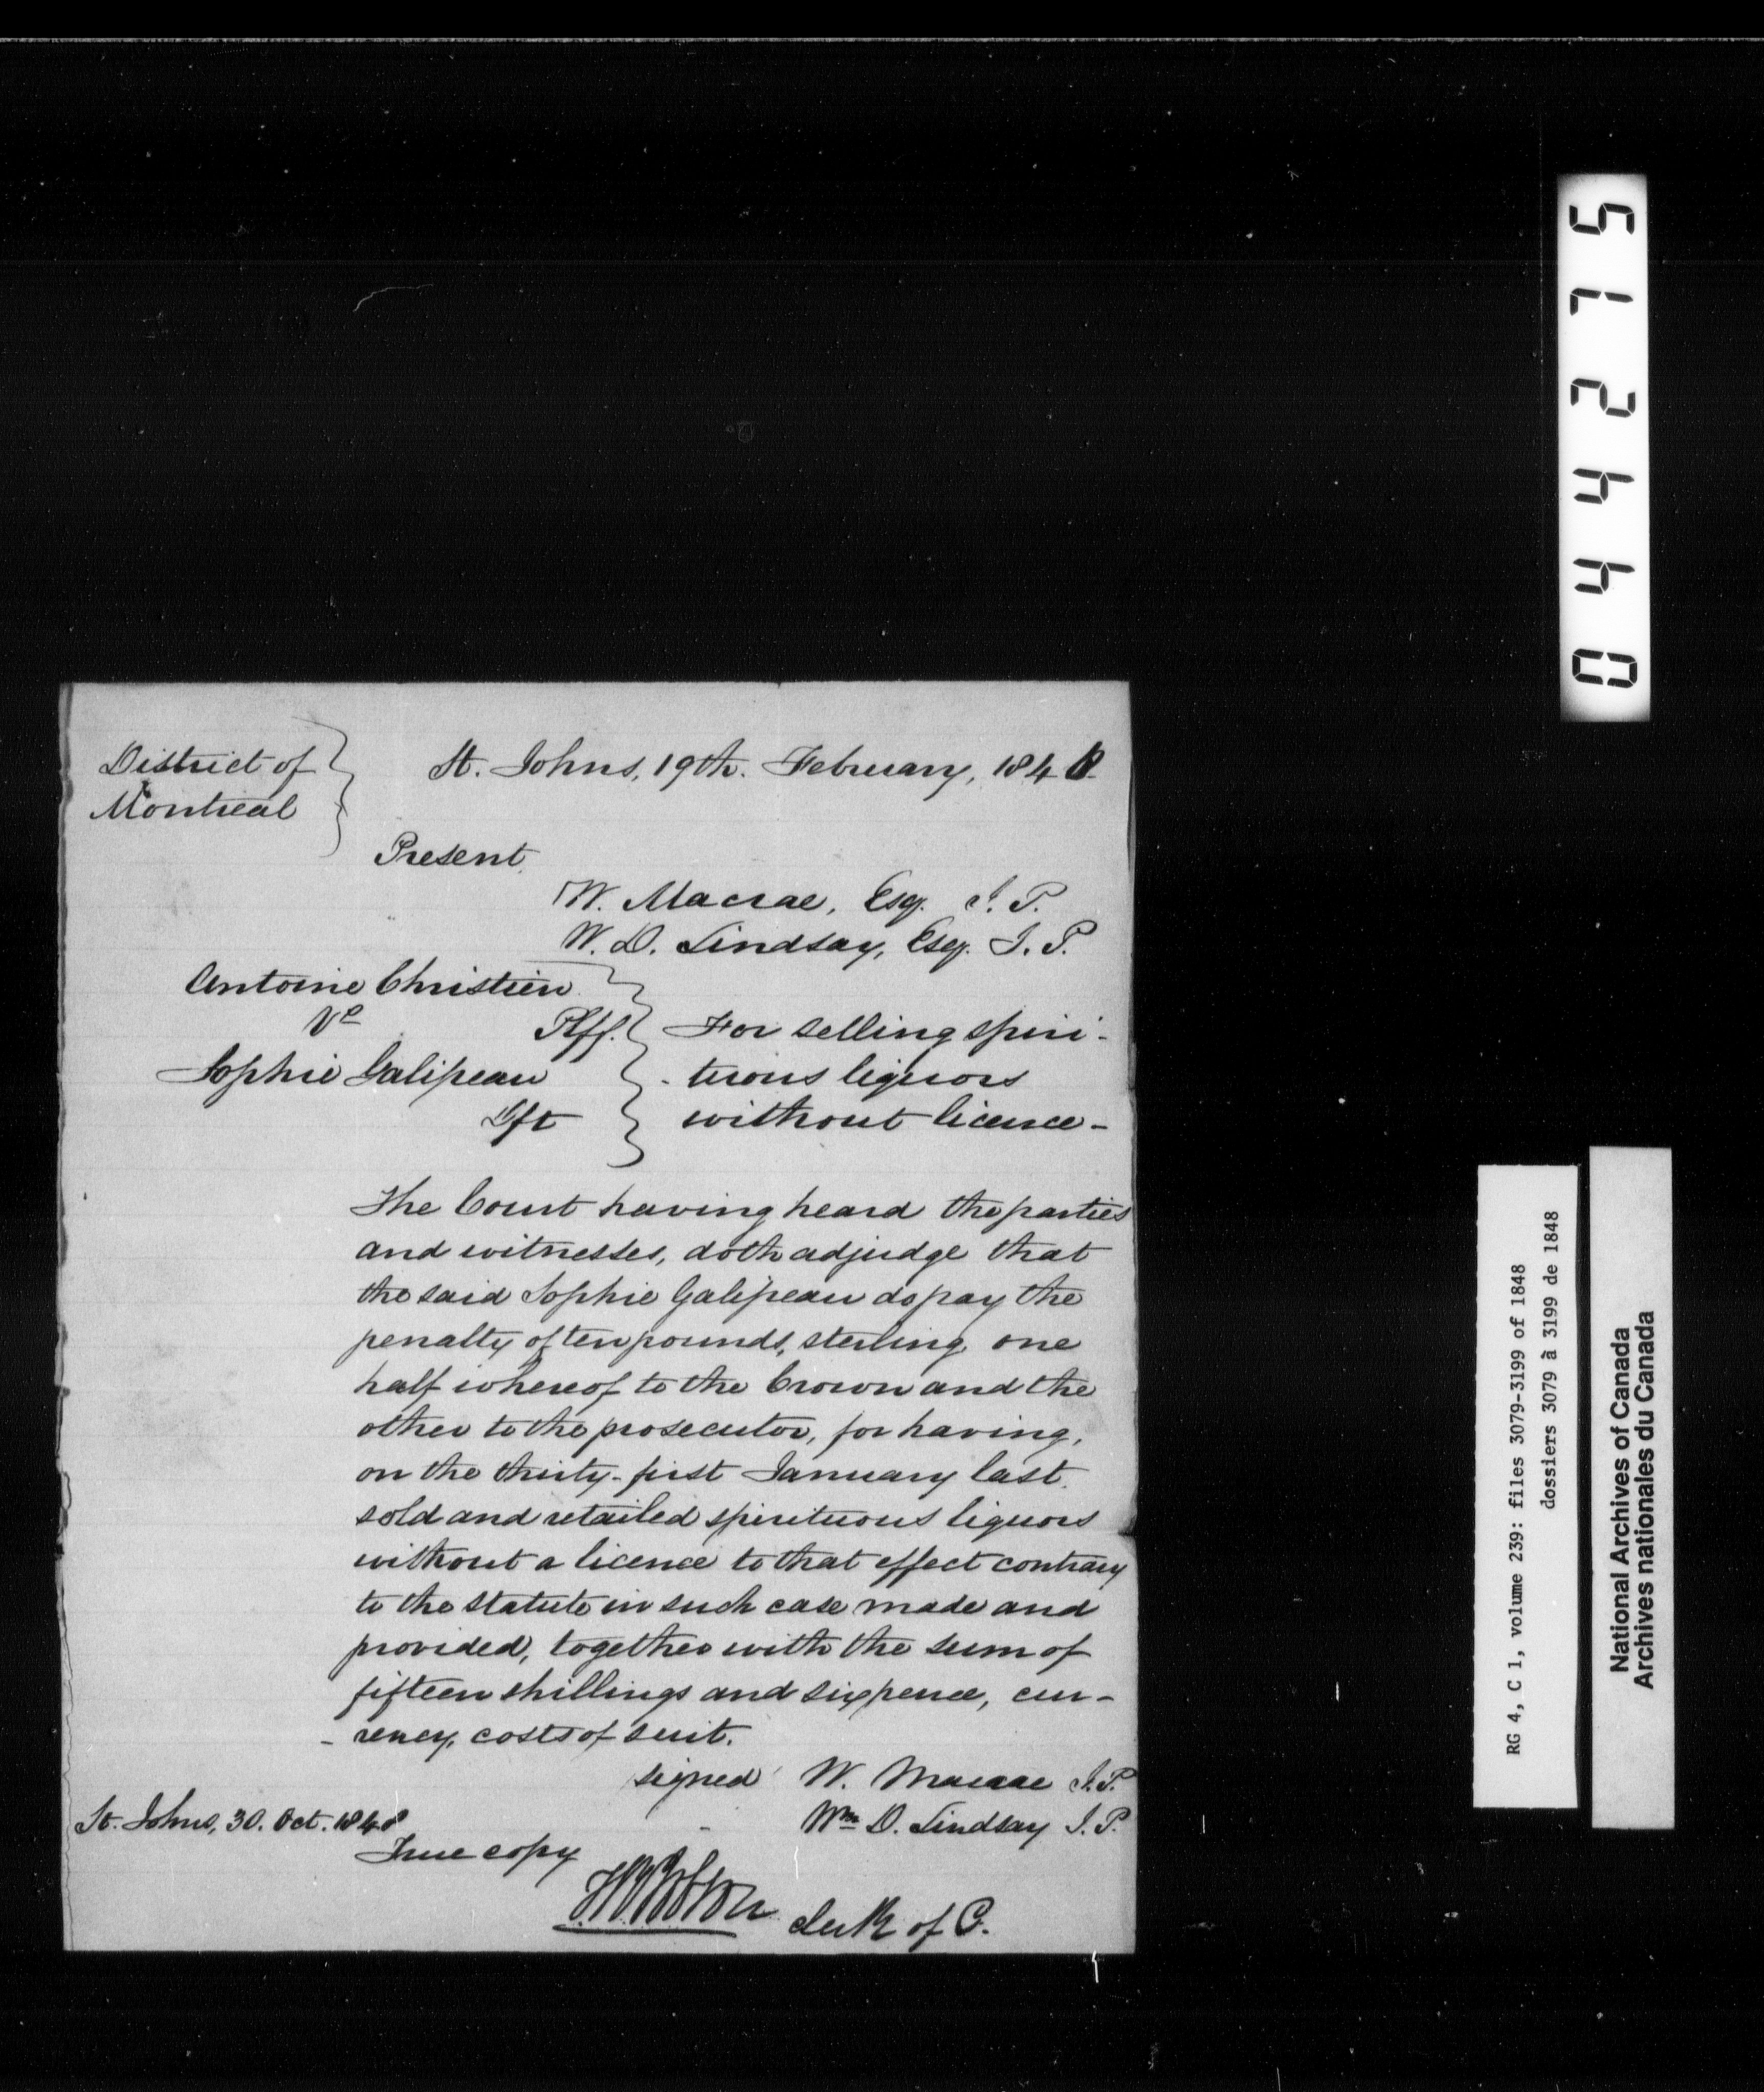 District of
Montreal
St. Johns, 19th. February, 1848.
Present,
W. Macrae, Esq. J. P.
W. D. Lindsay, Esq. J. P.
Antoine Christien
Vs
Plff.
Sophie Galipeau
Dft
For selling spiri-
-tuous liquors
without licence-
The Court having heard the parties
and witnesses, doth adjudge that
the said Sophie Galipeau do pay the
penalty of ten pounds, sterling, one
half whereof to the Crown and the
other to the prosecutor, for having,
on the thirty-first January last,
sold and retailed spirituous liquors
without a licence to that effect contrary
to the statute in such case made and
provided, together with the sum of
fifteen shillings and sixpence, cur-
-rency, costs of suit.
signed W. Macrae J.P.
Wm D. Lindsay J.P.
St. Johns, 30. Oct. 1848
True copy
Clerk of C.
044275
RG 4, C 1, volume 239: files 3079-3199 of 1848
dossiers 3079 à 3199 de 1848
National Archives of Canada
Archives nationales du Canada